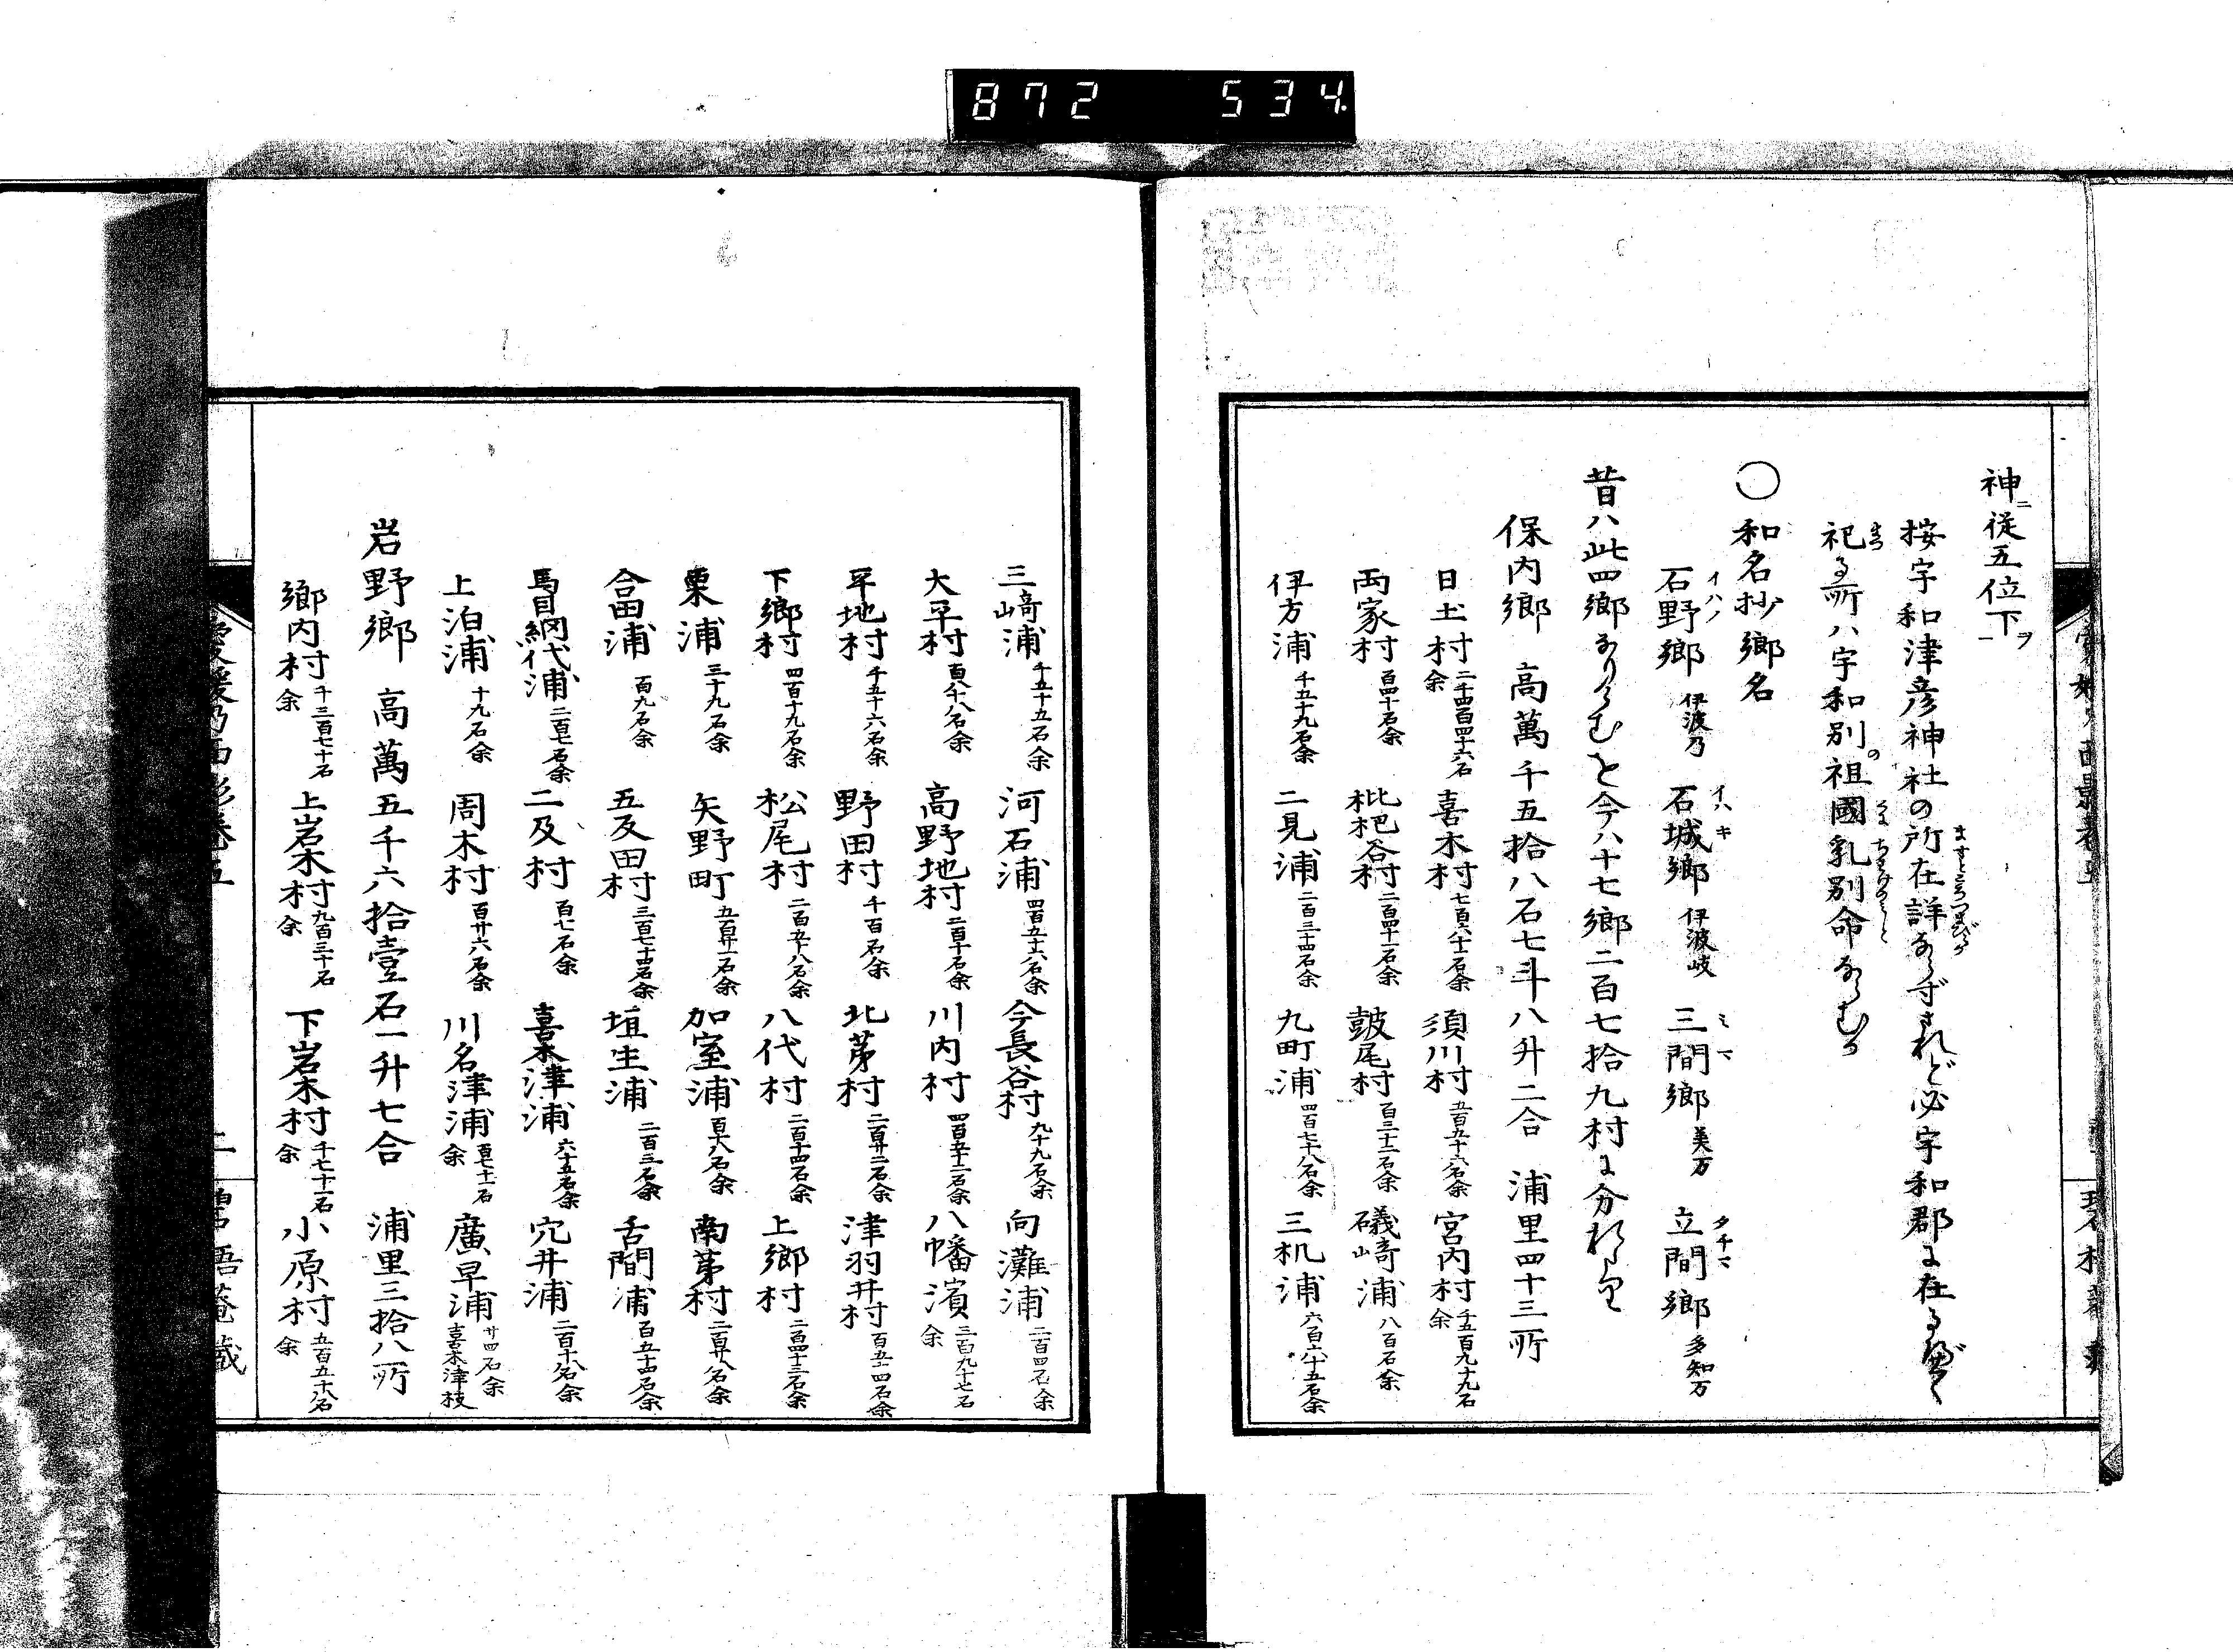 872 534
神ニ従五位下ヲ
按宇和津彦神社の所在詳ならずされど必宇和郡に在るべく
祀る所ハ宇和別の祖國乳別命ならむか
○和名抄郷名
石野郷 伊波乃 石城郷 伊波岐 三間郷 美万 立間郷 多知万
昔ハ此四郷なりけむを今ハ十七郷二百七拾九村に分れたり
保内郷 高萬千五拾八石七斗八升二合 浦里四十三所
日土村 二千四百四十六石余 喜木村 七百六十一石余 須川村 五百五十六石余 宮内村 千五百九十九石余
両家村 百四十石余 枇杷谷村 二百四十一石余 皷尾村 百三十二石余 礒﨑浦 八百石余
伊方浦 千五十九石余 二見浦 二百三十四石余 九町浦 四百七十八石余 三机浦 六百六十五石余
三﨑浦 千五十五石余 河石浦 四百五十六石余 今長谷村 九十九石余 向灘浦 二百四石余
大平村 百八十八石余 高野地村 二百十石余 川内村 四百五十二石余 八幡濱 二百九十七石余
平地村 千五十六石余 野田村 千百石余 北茅村 二百廿二石余 津羽井村 百五十四石余
下郷村 四百十九石余 松尾村 二百五十八石余 八代村 二百十四石余 上郷村 二百四十三石余
栗浦 三十九石余 矢野町 五百廿一石余 加室浦 百十六石余 南茅村 二百廿八石余
合田浦 百九石余 五反田村 三百七十四石余 垣生浦 二百三石余 舌間浦 百五十四石余
馬目網代浦 二百七石余 二及村 百七石余 喜木津浦 六十五石余 穴井浦 二百十八石余
上泊浦 十九石余 周木村 百廿六石余 川名津浦 百七十一石余 廣早浦 廿四石余 喜木津枝
岩野郷 高萬五千六拾壹石一升七合 浦里三拾八所
郷内村 千三百七十石余 上岩木村 九百三十石余 下岩木村 千七十一石余 小原村 五百五十八石余